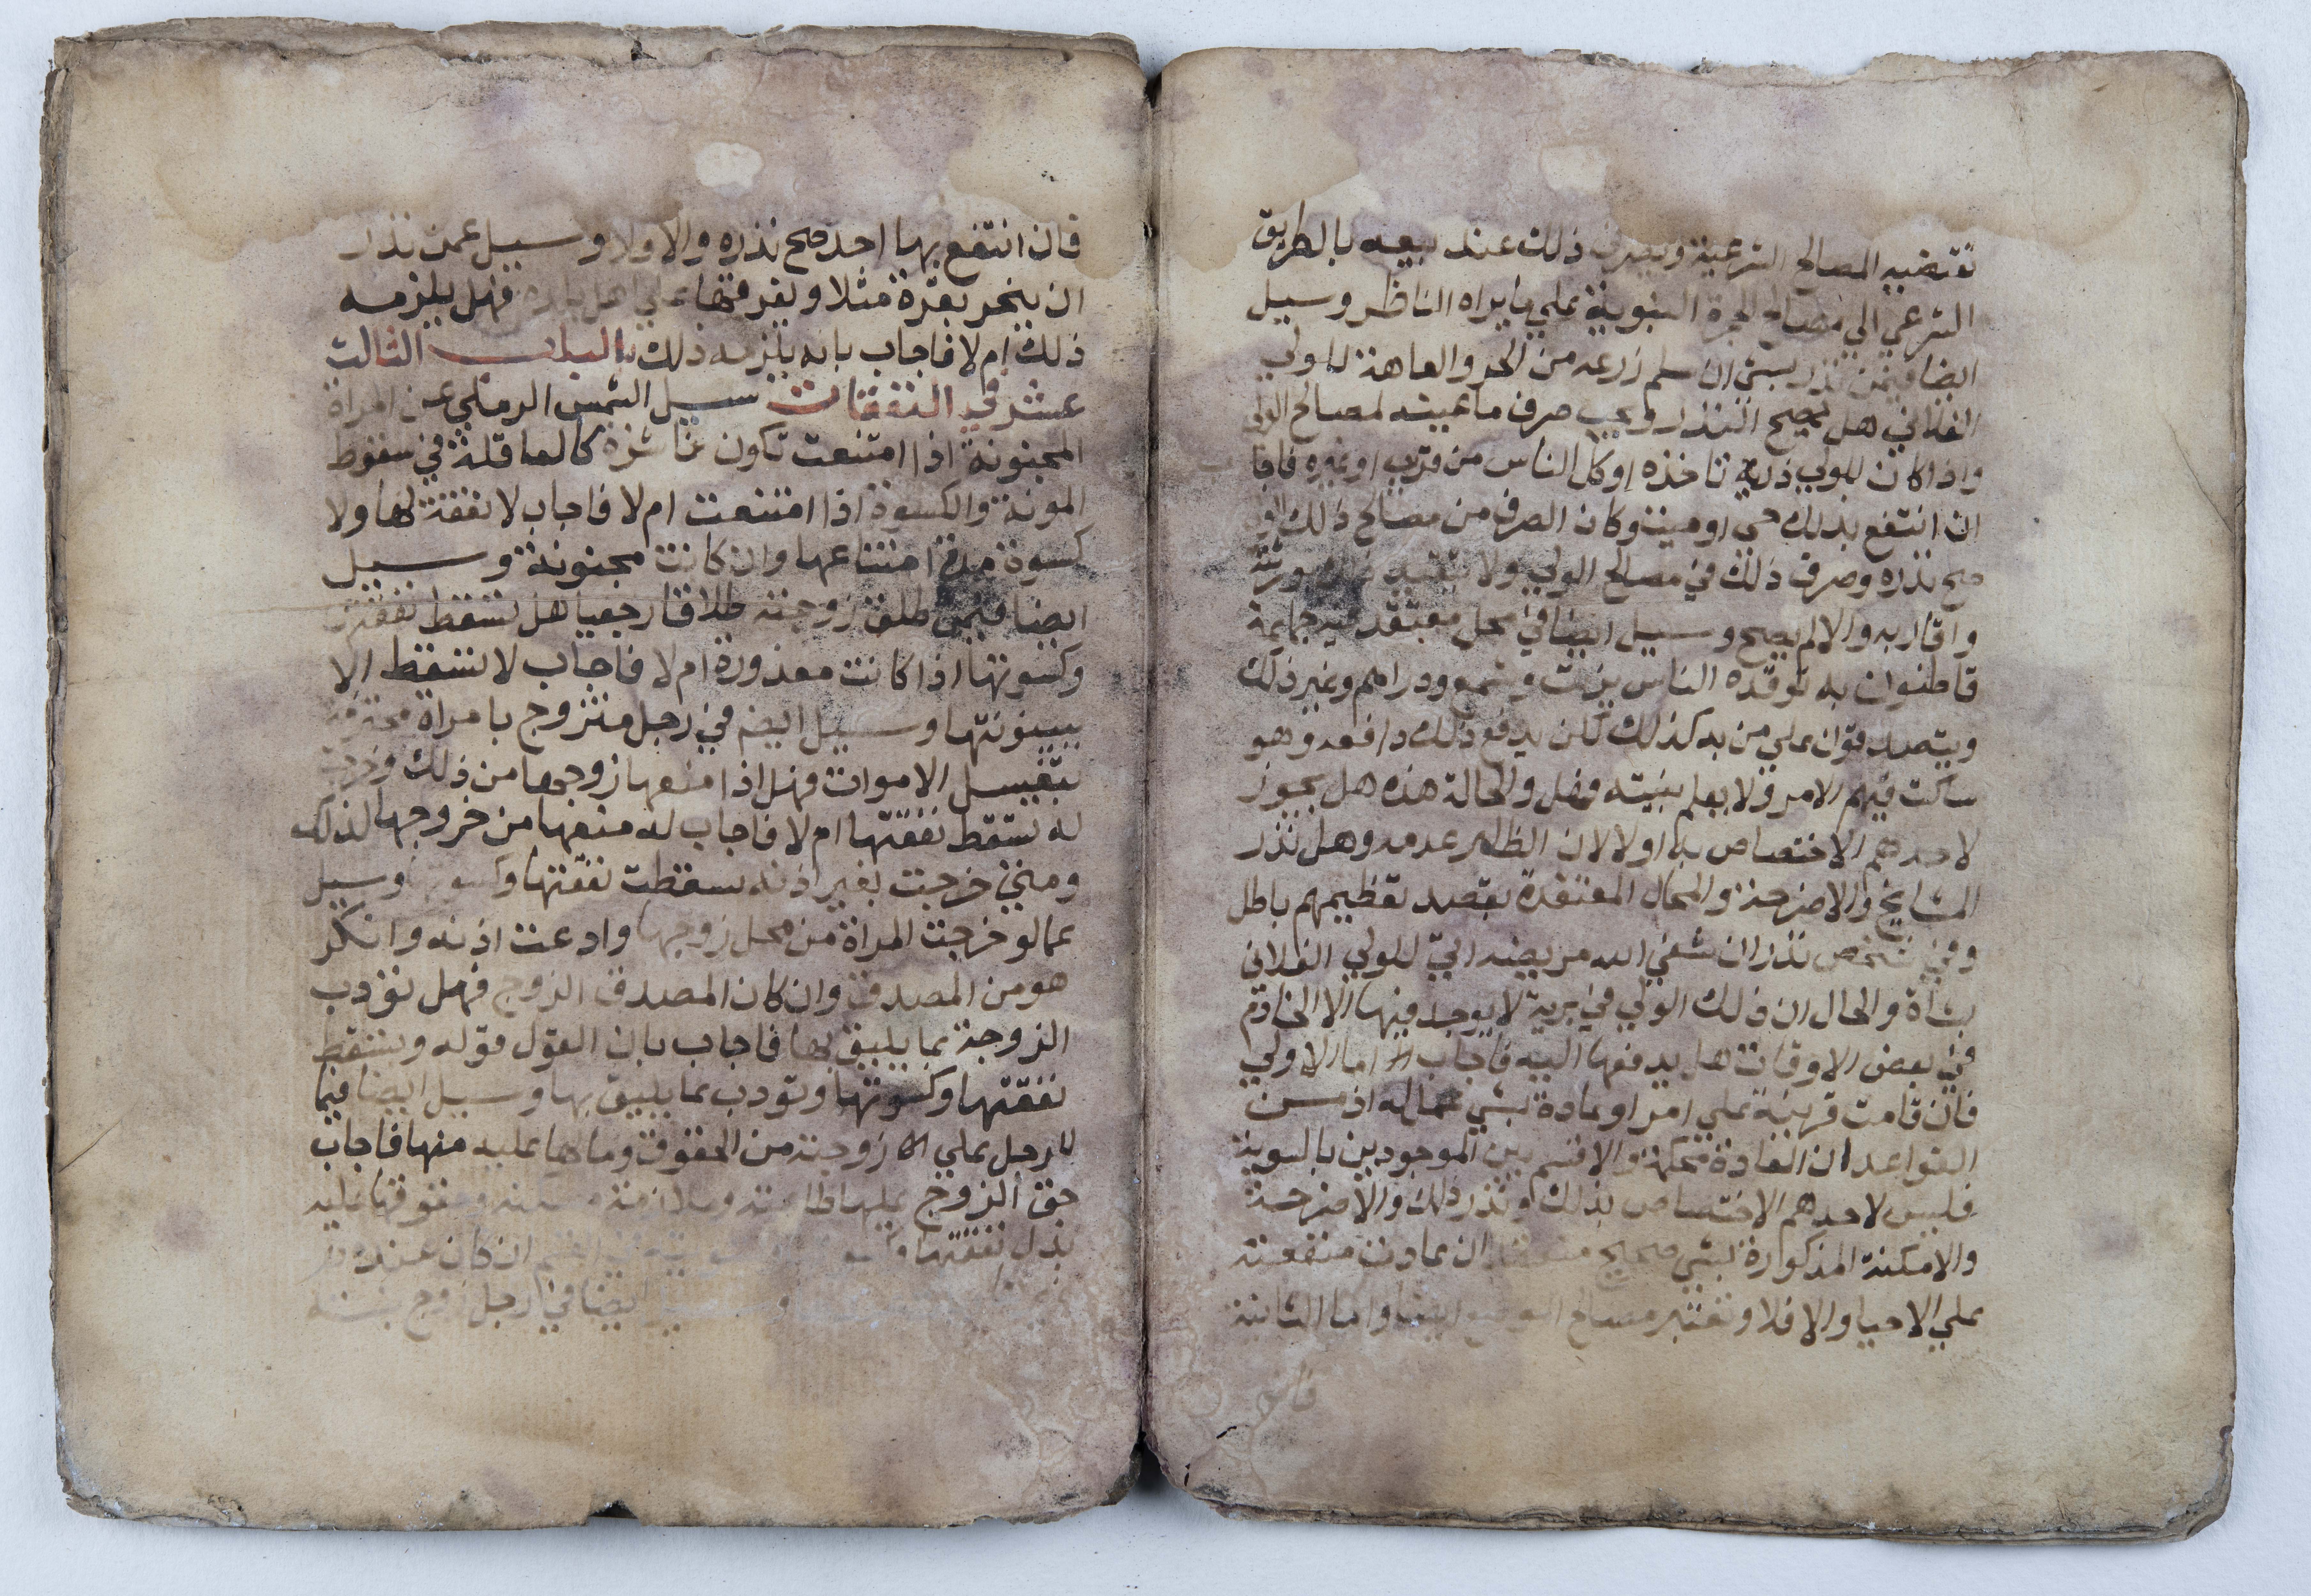 تقتضيه المصالح الشرعية ويصرف ذلك عند بيعه بالطريق
الشرعي الي مصالح الحجرة النبوية علي ما يراه الناظر وسيل
ايضا فيمن نذر بشي ان سلم زرعه من الحر والعاهة للولي
الفلاني هل يصح النذر ويجب صرف ما عينه لمصالح الولي
واذا كان للولي ذرية تاخذه او كل الناس من قريب او غيره فاجاب
ان انتفع بذلك حي او ميت وكان الصرف من مصالح ذلك الولي
صح نذره وصرف ذلك في مصالح الولي ولا يتقيد
واقاربه والا لم يصح وسيل ايضا في محل معتقد فيه جماعة
قاطنوان به توقده الناس بزيت وشمع ودراهم وغير ذلك
ويتصدقوان علي من به كذلك لكن يدفع ذلك دافعه وهو
ساكت فيهم الامر ولا يعلم بنيته فهل والحالة هذه هل يجوز
لاحدهم الاختصاص به اولا لان الظاهر عدمه وهل نذر
المشايخ والاضرحة والمحال المعتقدة بقصد تعظيمهم باطل
وفي شخص نذر ان شفي الله مريضه اتي للولي الفلاني
بشاة والحال ان ذلك الولي في برية لا يوجد فيها الا الخادم
في بعض الاوقات هل يدفعها اليه فاجاب اما الاولي
فان قامت قرينة علي امر او عادة بشي عمل له اذ من
القواعد ان العادة محكمة والا قسم بين الموجودين بالسوية
فليس لاحدهم الاختصاص بذلك ونذر ذلك والاضرحة
والامكنة المذكوارة بشي صحيح ان عادت منفعته
علي الاحيا والا فلا وتعتبر مصالح ايضا واما الثانية
فان
فان انتفع بها احد صح نذره والا ولا وسيل عمن نذر
ان ينحر بقرة مثلا ويفرقها علي اهل بلده فهل يلزمه
ذلك ام لا فاجاب بانه يلزمه ذلك الباب الثالث
عشر في النفقات سيل الشمس الرملي عن المراة
المجنونة اذا امتنعت تكون ناشزة كالعاقلة في سقوط
المونة والكسوة اذا امتنعت ام لا فاجاب لا نفقة لها ولا
كسوة مدة امتناعها وان كانت مجنونة وسيل
ايضا فيمن طلق زوجته طلاقا رجعيا هل تسقط نفقتها
وكسوتها اذا كانت معذورة ام لا فاجاب لا تسقط الا
ببينونتها وسيل ايضا في رجل متزوج بامراة محترفة
بتغسيل الاموات فهل اذا منعها زوجها من ذلك وخرجت
له تسقط نفقتها ام لا فاجاب له منعها من خروجها لذلك
ومتي خرجت بغير اذنه سقطت نفقتها وكسوتها وسيل
عما لو خرجت المراة من محل زوجها وادعت اذنه وانكر
هو من المصدق وان كان المصدق الزوج فهل تؤدب
الزوجة بما يليق بها فاجاب بان القول قوله وتسقط
نفقتها وكسوتها وتودب بما يليق بها وسيل ايضا فيما
للرجل علي زوجته من الحقوق وما لها عليه منها فاجاب
حق الزوج عليها طاعته وملازمة مسكنه وحقوقها عليه
بذل نفقتها ان كان عنده
وسيل ايضا في رجل زوج بنته